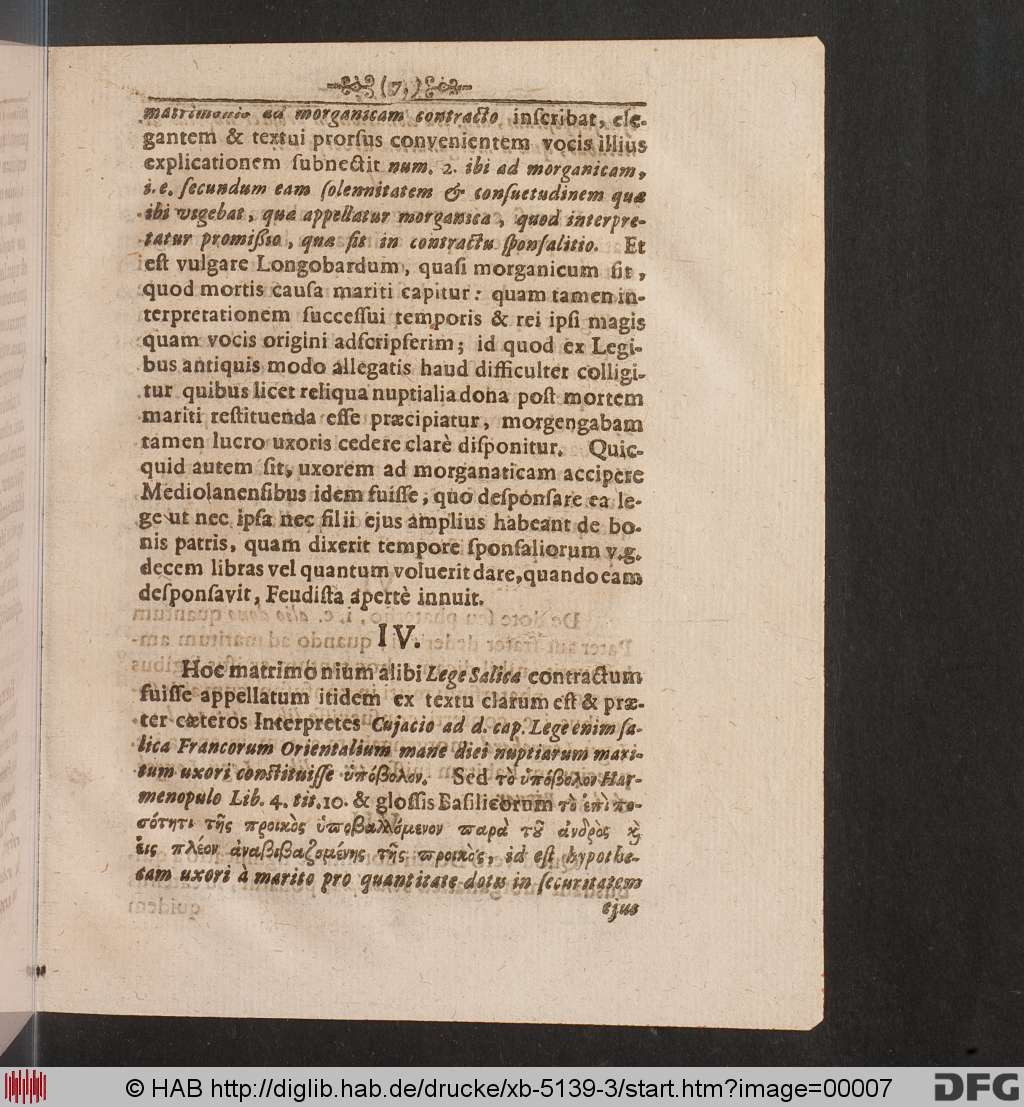 (7.)
matrimonio ad morganicam contracto inſcribat, ele-
gantem & textui prorſus convenientem vocis illius
explicationem ſubnectit num. 2. ibi ad morganicam,
i. e. ſecundum eam ſolennitatem & conſuetudinem quæ
ibi vigebat, qua appellatur morganica, quod interpre-
tatur promiſsio, quæ fit in contractu ſponſalitio. Et
eſt vulgare Longobardum, quaſi morganicum ſit,
quod mortis cauſa mariti capitur: quam tamen in-
terpretationem ſucceſſui temporis & rei ipſi magis
quam vocis origini adſcripſerim; id quod ex Legi-
bus antiquis modo allegatis haud difficulter colligi-
tur quibus licet reliqua nuptialia dona poſt mortem
mariti reſtituenda eſſe præcipiatur, morgengabam
tamen lucro uxoris cedere clarè diſponitur. Quic-
quid autem ſit, uxorem ad morganaticam accipere
Mediolanenſibus idem fuiſſe, quo deſponſare ea le-
ge ut nec ipſa nec filii ejus amplius habeant de bo-
nis patris, quam dixerit tempore ſponſaliorum v.g.
decem libras vel quantum voluerit dare, quando eam
deſponſavit, Feudiſta apertè innuit.
IV.
Hoc matrimonium alibi Lege Salica contractum
fuiſſe appellatum itidem ex textu clarum eſt & præ-
ter cæteros Interpretes Cujacio ad d. cap. Lege enim ſa-
lica Francorum Orientalium mane diei nuptiarum mari-
tum uxori conſtituiſſe ὑπόβολον. Sed τὸ ὑπόβολον Har-
menopulo Lib. 4. tit. 10. & gloſſis Baſilicorum τὸ ἐπὶ πο-
σότητι τῆς προικὸς ὑποβαλλόμενον παρὰ τȣ͂ ἀνδρὸς ϗ̀
εἰς πλέον ἀναβιβαζομένης τῆς προικὸς, id eſt hypothe-
cam uxori à marito pro quantitate dotis in ſecuritatem
ejus
© HAB http://diglib.hab.de/drucke/xb-5139-3/start.htm?image=00007
DFG